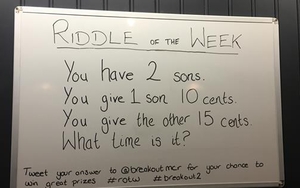 RIDDLE OF THE WEEK
You have 2 sons.
You give 1 son 10 cents.
You give the other 15 cents.
What time is it?
Tweet your answer to @breakoutmcr for your chance to
win great prizes #rotw #breakout2